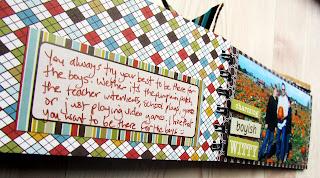 You always try your best to be there for
the boys. Wether it's the pumpkin patch,
the teacher interviews, school plays
or just playing video games..
you want to be there for the boys =
charming
boyish
WITTY